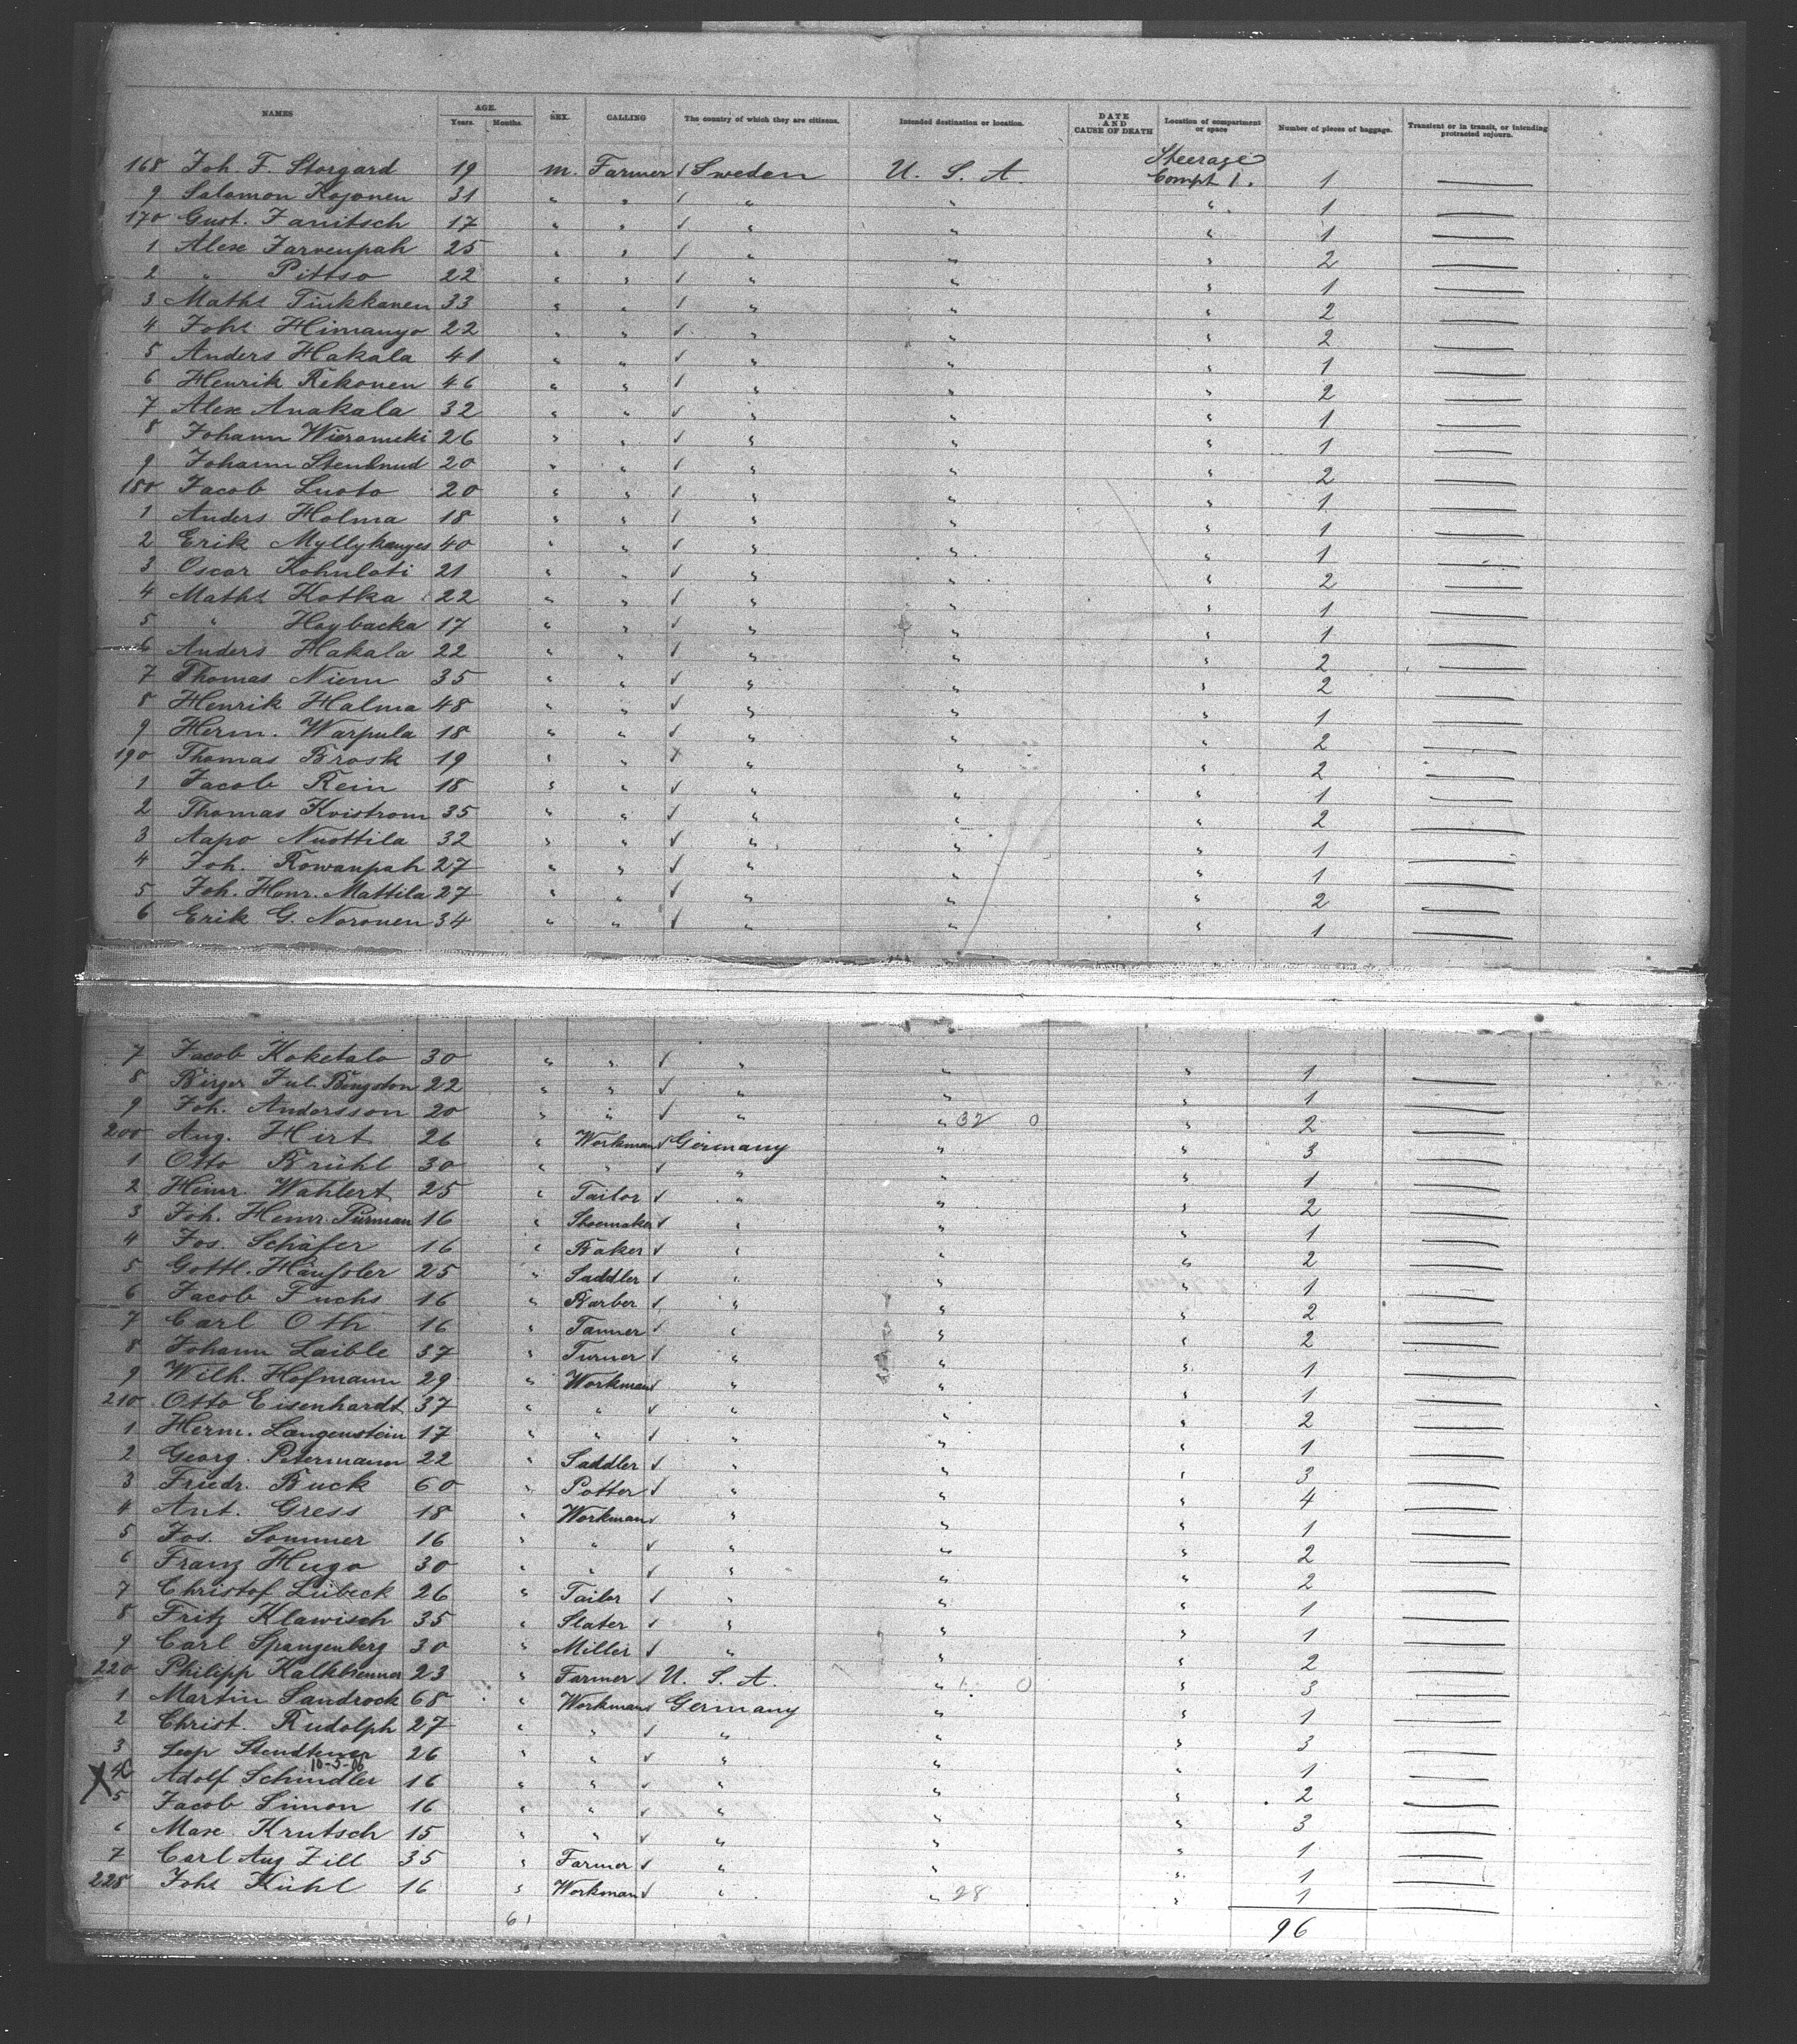 NAMES AGE. Years. Months. SEX. CALLING The country of which they are citizens. Intended destination or location. DATE AND CAUSE OF DEATH Location of compartment or space Number of pieces of baggage. Transient or in transit, or intending protracted sojourn.
168 Joh. F. Storgard 19 m. Farmer √ Sweden U. S. A. Steerage Compt 1. 1 —
9 Salomon Kojonen 31 " " √ " " " 1 —
170 Gust. Janitsch 17 " " √ " " " 1 —
1 Alex Jarvenpah 25 " " √ " " " 2 —
2 " Pittso 22 " " √ " " " 1 —
3 Maths Tinkkanen 33 " " √ " " " 2 —
4 Johs Himanyo 22 " " √ " " " 2 —
5 Anders Hakala 41 " " √ " " " 1 —
6 Henrik Rekonen 46 " " √ " " " 2 —
7 Alex Anakala 32 " " √ " " " 1 —
8 Johann Wieromeki 26 " " √ " " " 1 —
9 Johann Stenbnud 20 " " √ " " " 2 —
180 Jacob Luoto 20 " " √ " " " 1 —
1 Anders Holma 18 " " √ " " " 1 —
2 Erik Myllykanges 40 " " √ " " " 1 —
3 Oscar Kohulati 21 " " √ " " " 2 —
4 Maths Kotka 22 " " √ " " " 1 —
5 " Haybacka 17 " " √ " " " 1 —
6 Anders Hakala 22 " " √ " " " 2 —
7 Thomas Niem 35 " " √ " " " 2 —
8 Henrik Halma 48 " " √ " " " 1 —
9 Herm. Warpula 18 " " √ " " " 2 —
190 Thomas Brosk 19 " " X " " " 2 —
1 Jacob Rein 18 " " √ " " " 1 —
2 Thomas Kvistrom 35 " " √ " " " 2 —
3 Aapo Nuottila 32 " " √ " " " 1 —
4 Joh. Rowanpah 27 " " √ " " " 1 —
5 Joh. Henr. Mattila 27 " " √ " " " 2 —
6 Erik G. Noronen 34 " " √ " " " 1 —
7 Jacob Koketalo 30 " " √ " " " 1 —
8 Birger Jul. Bengston 22 " " √ " " " 1 —
9 Joh. Andersson 20 " " √ " " 32 0 " 2 —
200 Aug. Hirt 26 " Workman √ Germany " " 3 —
1 Otto Brühl 30 " " √ " " " 1 —
2 Heinr. Wahlert 25 " Tailor √ " " " 2 —
3 Joh. Heinr. Purman 16 " Shoemaker √ " " " 1 —
4 Jos. Schäfer 16 " Baker √ " " " 2 —
5 Gottl. Häußler 25 " Saddler √ " " " 1 —
6 Jacob Fuchs 16 " Barber √ " " " 2 —
7 Carl Oth 16 " Tanner √ " " " 2 —
8 Johann Laible 37 " Turner √ " " " 1 —
9 Wilh. Hofmann 29 " Workman √ " " " 1 —
210 Otto Eisenhardt 37 " " √ " " " 2 —
1 Herm. Langenstein 17 " " √ " " " 1 —
2 Georg Petermann 22 " Saddler √ " " " 3 —
3 Friedr. Buck 60 " Potter √ " " " 4 —
4 Ant. Gress 18 " Workman √ " " " 1 —
5 Jos. Sommer 16 " " √ " " " 2 —
6 Franz Hugo 30 " " √ " " " 2 —
7 Christof Lübeck 26 " Tailor √ " " " 1 —
8 Fritz Klawisch 35 " Slater √ " " " 1 —
9 Carl Spangenberg 30 " Miller √ " " " 2 —
220 Philipp Kalkbrenner 23 " Farmer √ U. S. A. " 1. 0 " 3 —
1 Martin Sandrock 68 " Workman √ Germany " " 1 —
2 Christ. Rudolph 27 " " √ " " " 3 —
3 Leop 26 " " √ " " " 1 —
10-5-06
X 4 Adolf Schindler 16 " " √ " " " 2 —
5 Jacob Simon 16 " " √ " " " 3 —
6 Max Krutsch 15 " " √ " " " 1 —
7 Carl Aug Zill 35 " Farmer √ " " " 1 —
228 Johs Kühl 16 " Workman √ " " 28 " 1 —
61 96